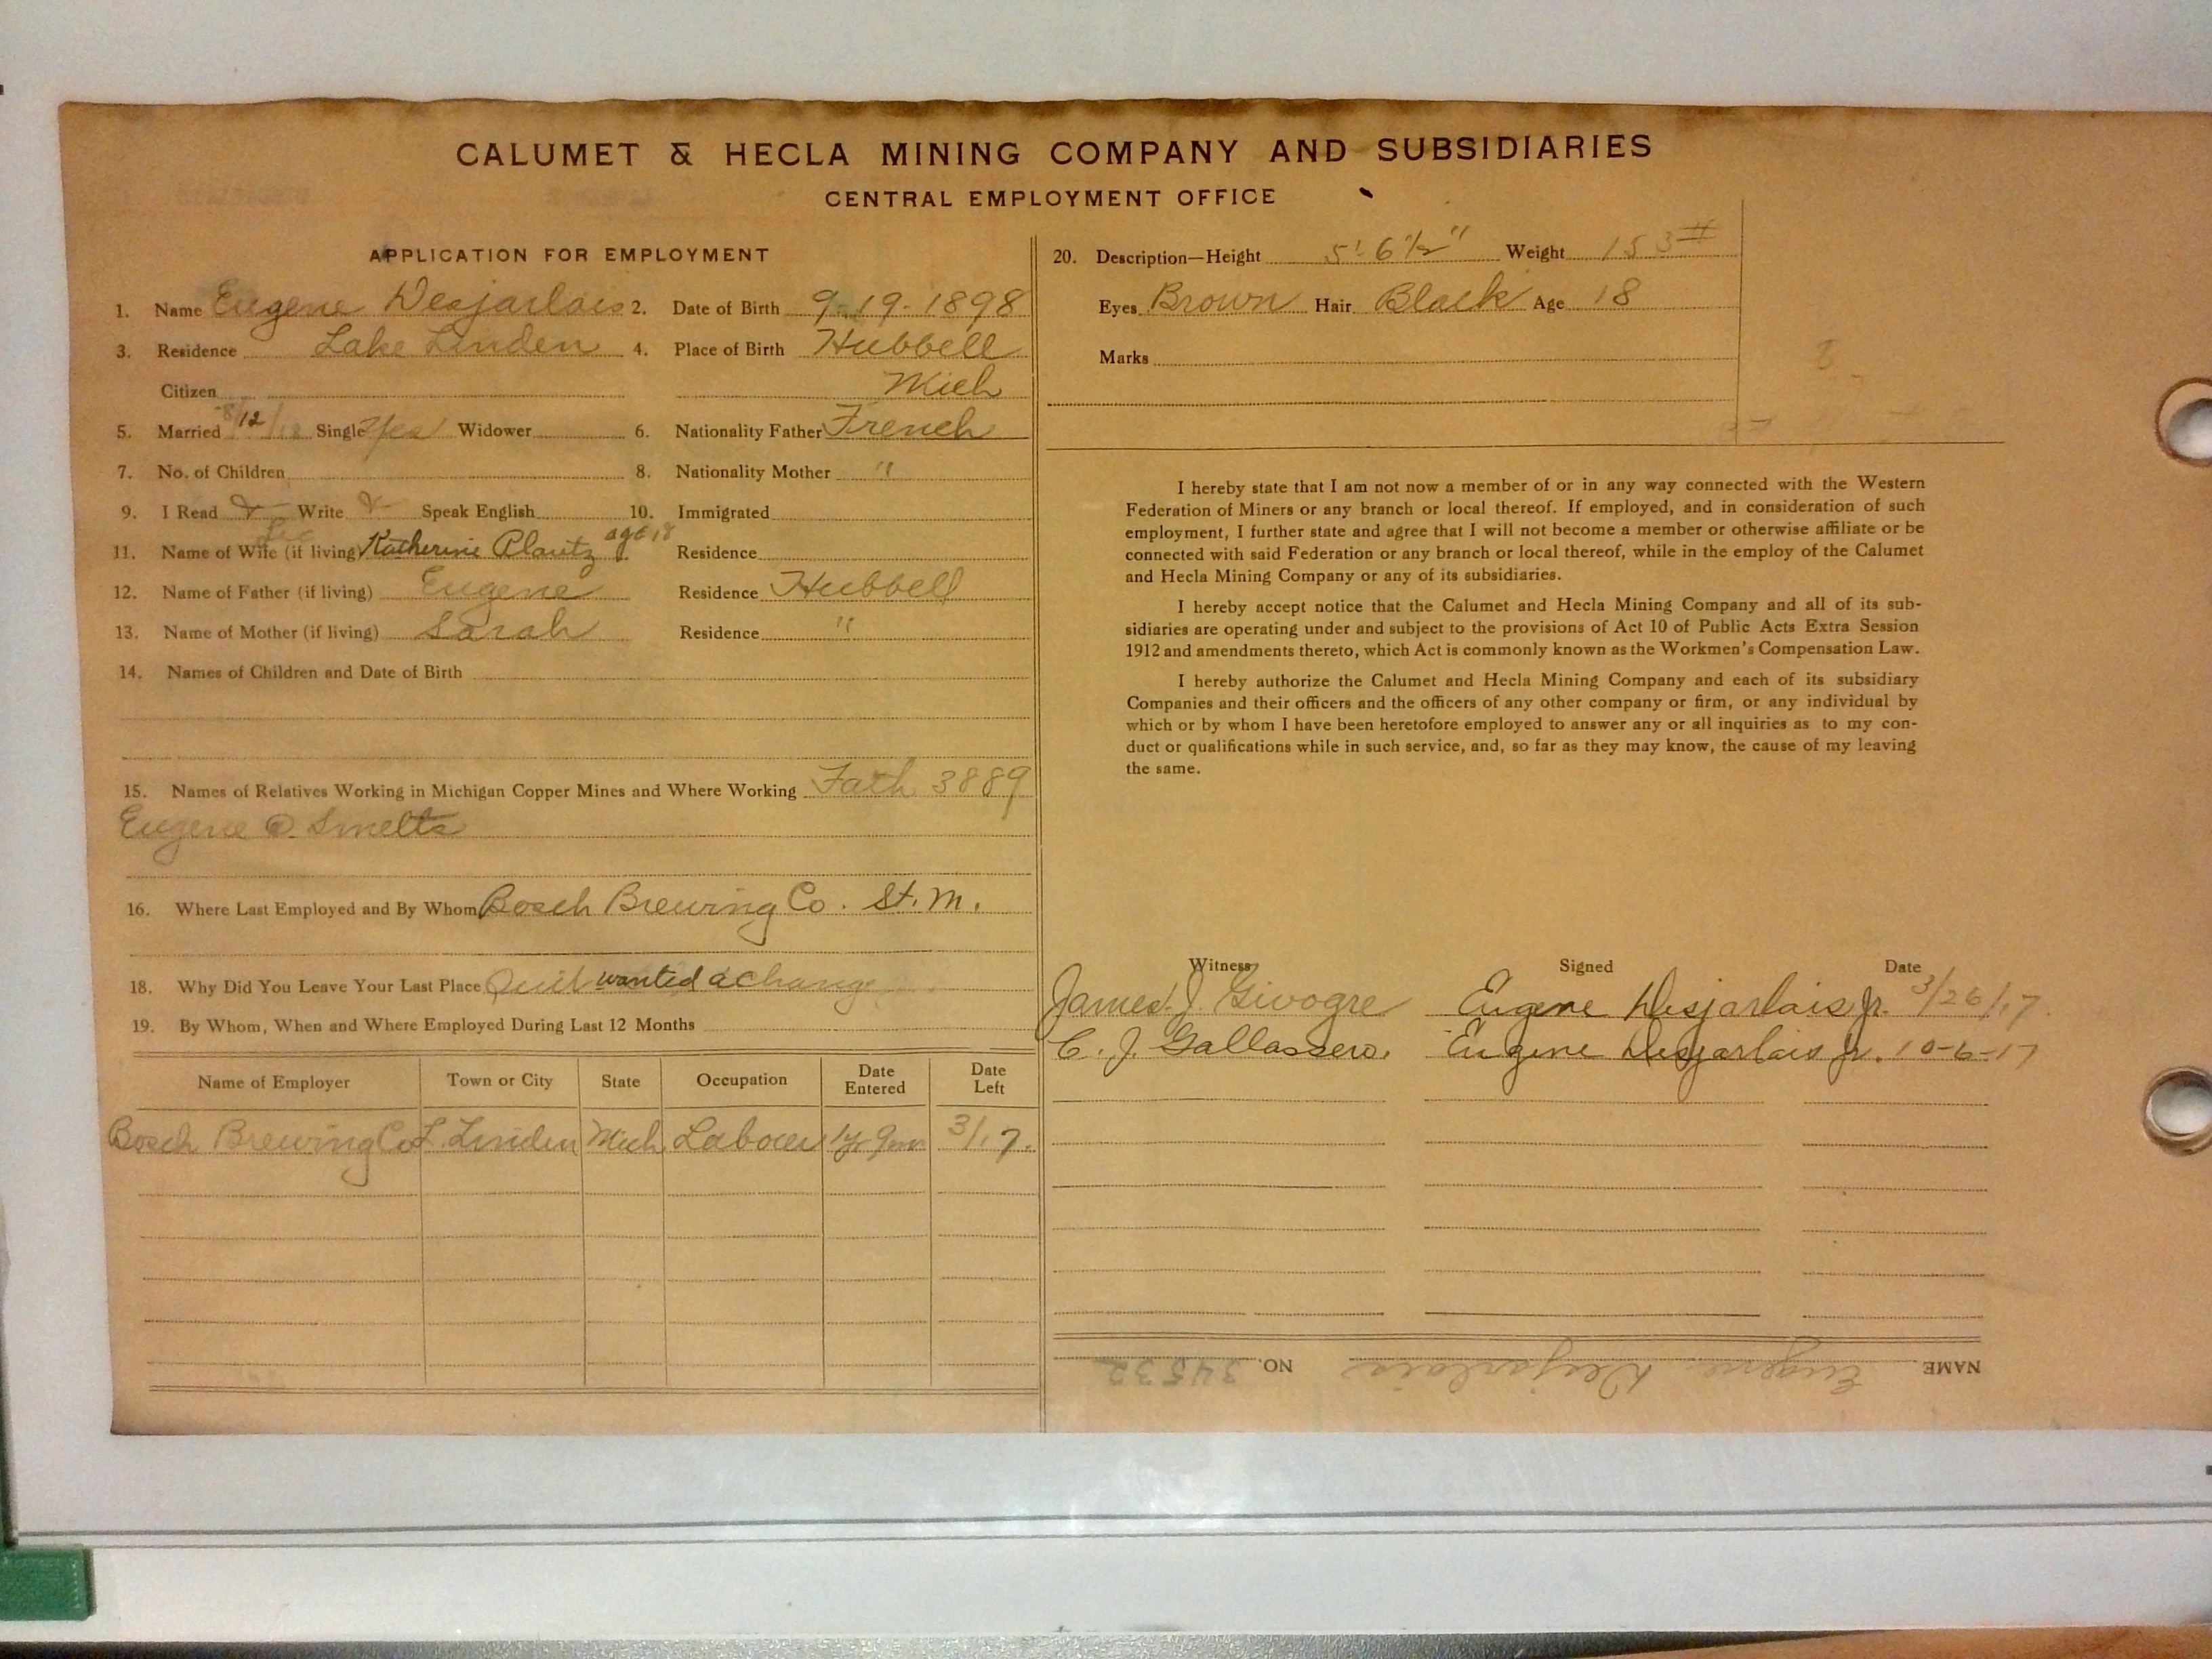 CALUMET & HECLA MINING COMPANY AND SUBSIDIARIES
CENTRAL EMPLOYMENT OFFICE
APPLICATION FOR EMPLOYMENT
1. Name Eugene Desjarlais 2. Date of Birth 9-19-1898
3. Residence Lake Linden 4. Place of Birth Hubbell
Citizen Mich
5. Married 8/12/18 Single Yes Widower 6. Nationality Father French
7. No. of Children 8. Nationality Mother "
9. I Read & Write & Speak English 10. Immigrated
11. Name of Wife (if living) Katherine Plautz age 18 Residence
12. Name of Father (if living) Eugene Residence Hubbell
13. Name of Mother (if living) Sarah Residence "
14. Names of Children and Date of Birth
15. Names of Relatives Working in Michigan Copper Mines and Where Working Fath 3889
Eugene D. Smelts
16. Where Last Employed and By Whom Bosch Brewing Co. St. M.
18. Why Did You Leave Your Last Place Quit wanted a change
19. By Whom, When and Where Employed During Last 12 Months
Name of Employer Town or City State Occupation Date Entered Date Left
Bosch Brewing Co L. Linden Mich Labour 1 yr 9 mo 3/17.
20. Description—Height 5' 6 1/2" Weight 153#
Eyes Brown Hair Black Age 18
Marks
I hereby state that I am not now a member of or in any way connected with the Western
Federation of Miners or any branch or local thereof. If employed, and in consideration of such
employment, I further state and agree that I will not become a member or otherwise affiliate or be
connected with said Federation or any branch or local thereof, while in the employ of the Calumet
and Hecla Mining Company or any of its subsidiaries.
I hereby accept notice that the Calumet and Hecla Mining Company and all of its sub-
sidiaries are operating under and subject to the provisions of Act 10 of Public Acts Extra Session
1912 and amendments thereto, which Act is commonly known as the Workmen's Compensation Law.
I hereby authorize the Calumet and Hecla Mining Company and each of its subsidiary
Companies and their officers and the officers of any other company or firm, or any individual by
which or by whom I have been heretofore employed to answer any or all inquiries as to my con-
duct or qualifications while in such service, and, so far as they may know, the cause of my leaving
the same.
Witness Signed Date
James J. Givogre Eugene Desjarlais Jr. 3/26/17.
C. J. Gallassero. Eugene Desjarlais Jr. 10-6-17
NAME Eugene Desjarlais NO. 34532